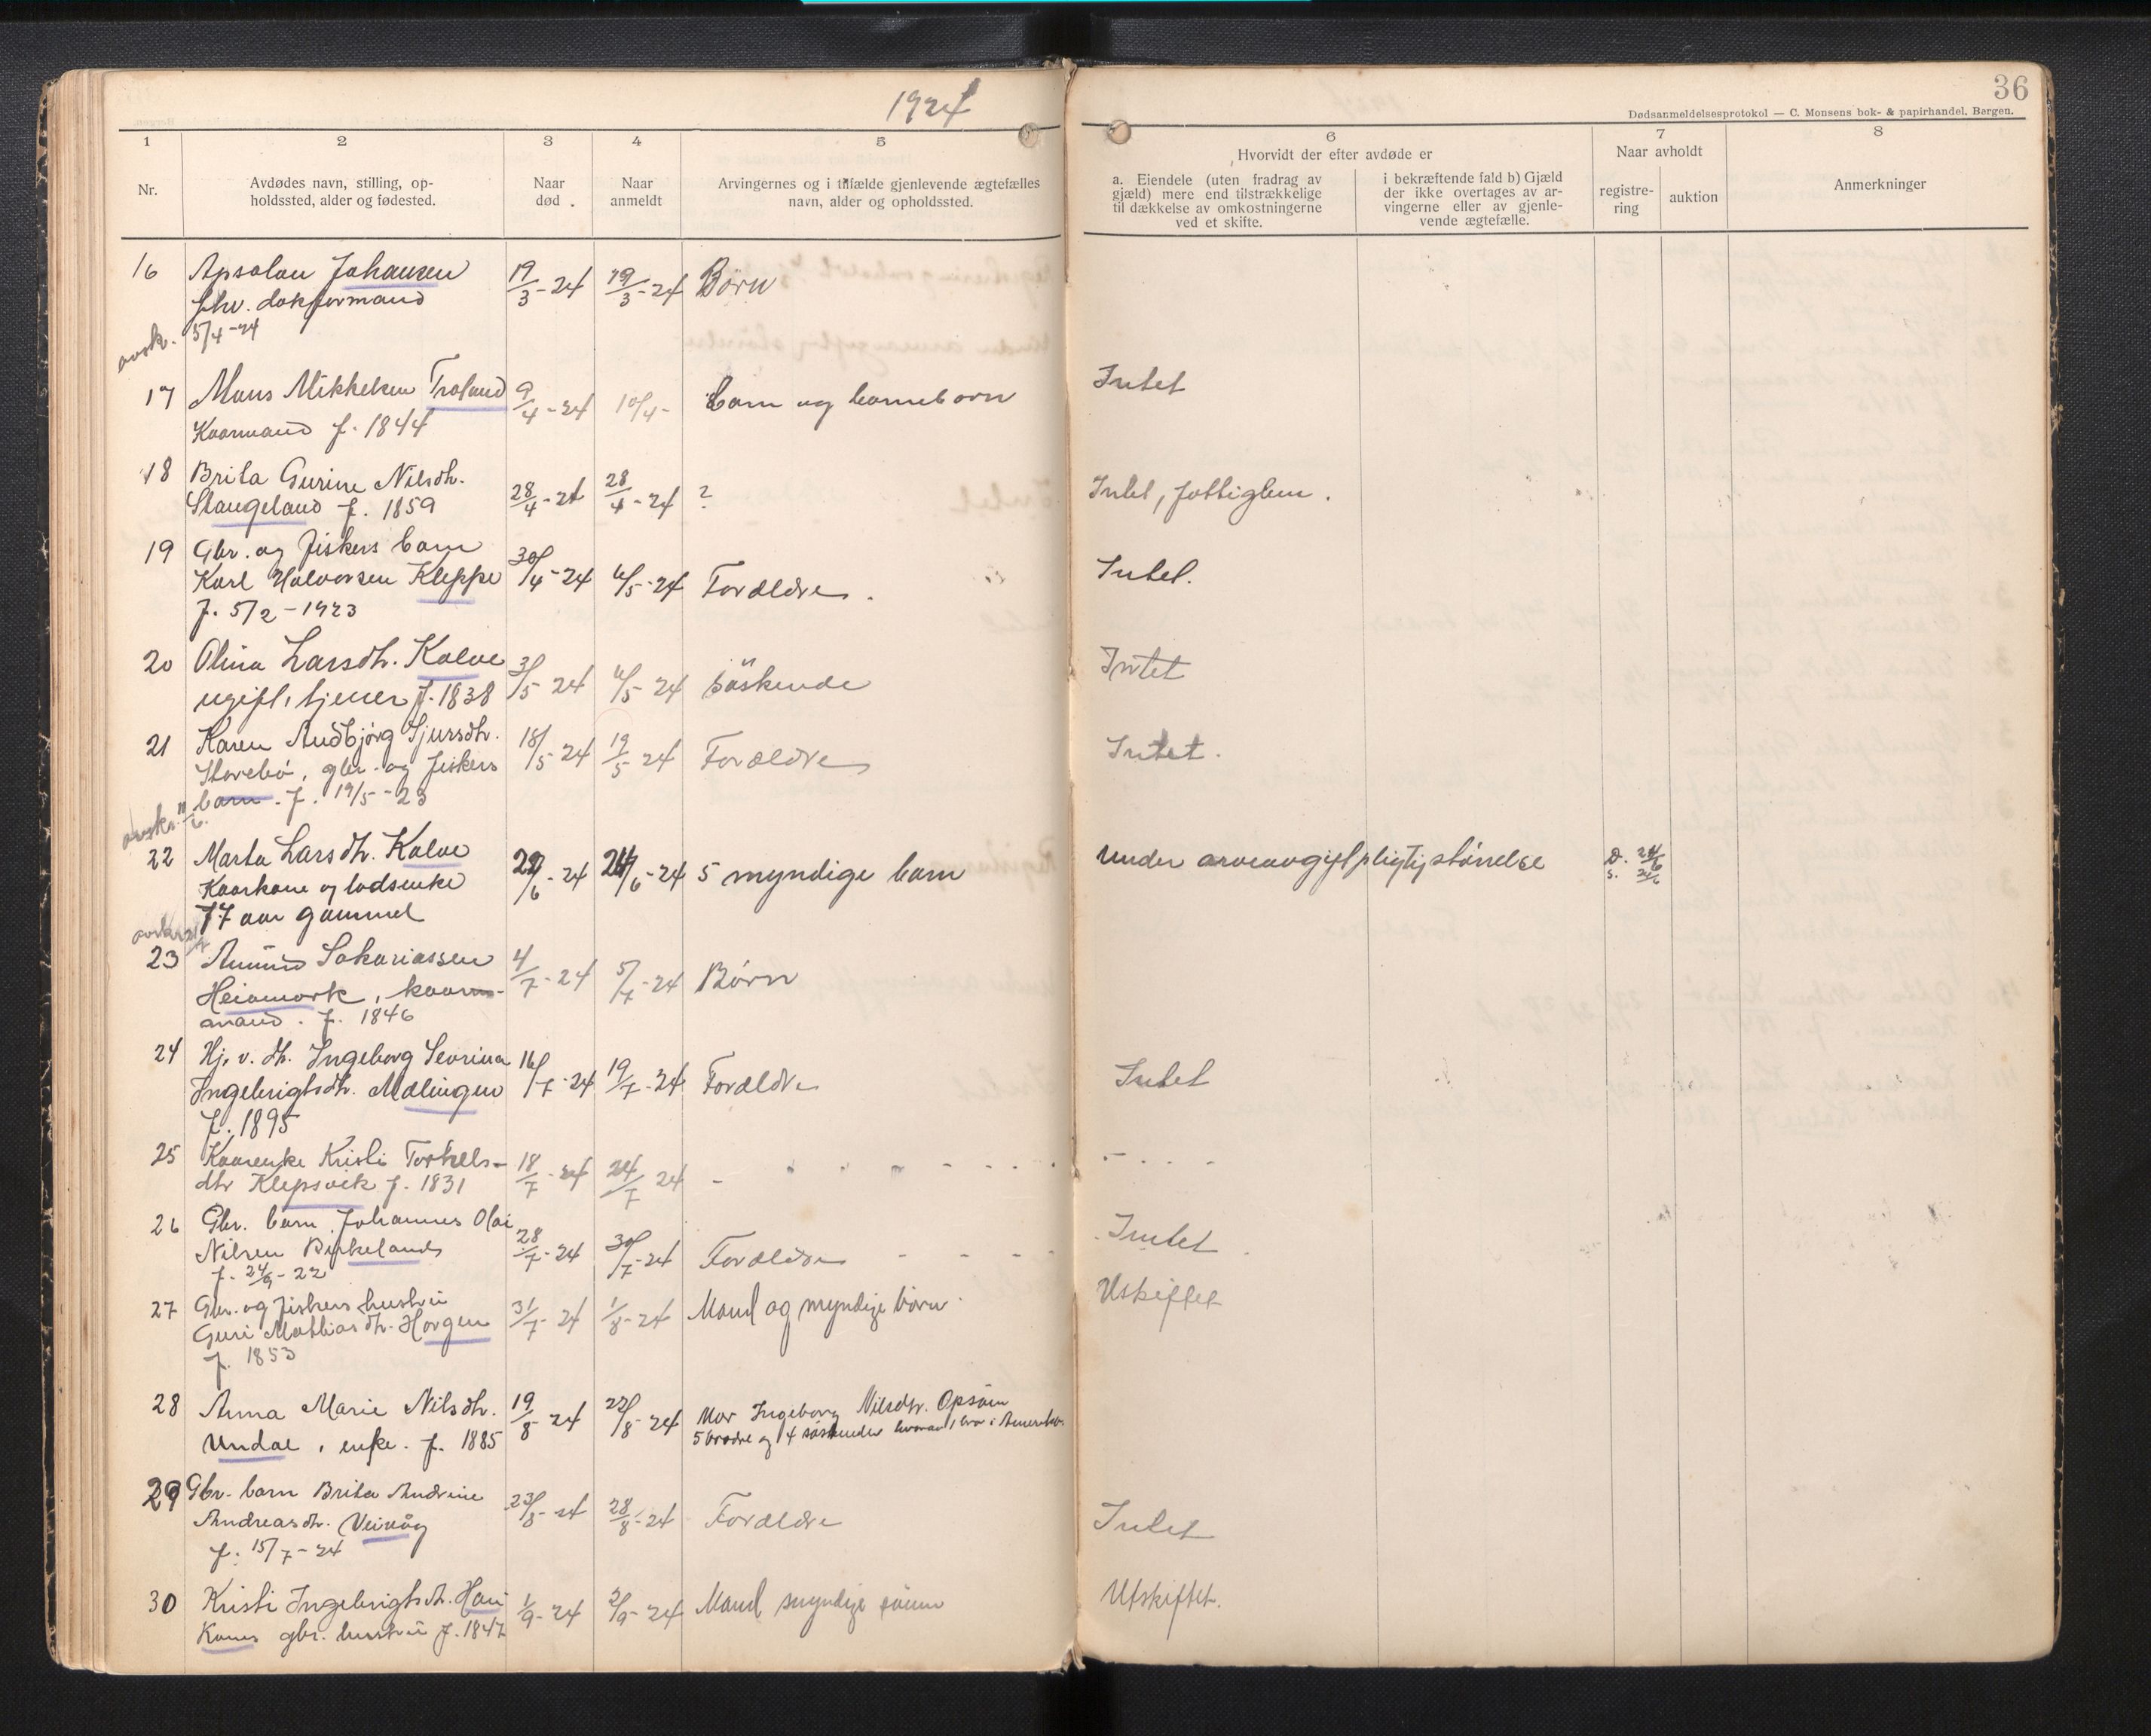 1924
36
Dødsanmeldelsesprotokol — C. Monsens bok- & papirhandel, Bergen.
1 2 3 4 5 6 7 8
Nr.
Avdødes navn, stilling, op-
holdssted, alder og fødested.
Naar
død
Naar
anmeldt
Arvingernes og i tilfælde gjenlevende ægtefælles
navn, alder og opholdssted.
Hvorvidt der efter avdøde er
a. Eiendele (uten fradrag av
gjæld) mere end tilstrækkelige
til dækkelse av omkostningerne
ved et skifte.
i bekræftende fald b) Gjæld
der ikke overtages av ar-
vingerne eller av gjenle-
vende ægtefælle.
Naar avholdt
registre-
ring
auktion
Anmerkninger
16 Apsalon Johansen 19/3-24 19/3-24 Börn
fhv. dokformand
avsk. 5/4-24
17 Mons Mikkelsen Troland 9/4-24 10/4- Barn og barneborn Intet
Kaarmand f. 1844
18 Brita Gurine Nilsdtr. 28/4-24 28/4-24 ? Intet, fattiglem.
Stangeland f. 1859
19 Gbr. og fiskers barn
Karl Halvorsen Kleppe 30/4-24 6/5-24 Forældre. Intet.
f. 5/2-1923
20 Olina Larsdtr. Kalve 3/5 24 6/5-24 söskende Intet
ugift, tjener f. 1838
21 Karen Andbjørg Sjursdtr. 18/5-24 19/5 24 Forældre Intet.
Storebö, gbr. og fiskers
barn. f. 19/5-23
avskr. 11/6.
22 Marta Larsdtr. Kalve 22/6-24 24/6-24 5 myndige barn under arveavgiftspligtig störrelse D. 24/6
Kaarkone og lodsenke S. 24/6
77 aar gammel
23 Amund Sakariassen 4/7-24 5/7-24 Børn
Heiamork, kaar-
mand. f. 1846
24 Hj. v. dtr. Ingeborg Severina 16/7-24 19/7-24 Forældre Intet
Ingebrigtsdtr. Mælingen
f. 1895
25 Kaarenke Kristi Torkels- 18/7-24 24/7 24 - - - - -
dtr Klepsvik f. 1831
26 Gbr. barn Johannes Olai
Nilsen Birkeland 28/7-24 30/7-24 Forældre - - - Intet
f. 24/9-22
27 Gbr. og fiskers hustru 31/7-24 1/8-24 Mand og myndige börn. Uskiftet
Guri Mathiasdtr. Horgen
f. 1853
28 Anna Marie Nilsdtr. 19/8-24 22/8-24 Mor Ingeborg Nilsdtr. Opsöen
Undal, enke. f. 1885 5 brødre og 4 söskender hvorav 1 bror i Amerika
29 Gbr. barn Brita Andrine 23/8-24 28/8-24 Forældre Intet
Andreasdtr. Veivåg
f. 15/7-24
30 Kristi Ingebrigtsdtr. Hau- 1/9-24 2/9-24 Mand myndige Utskiftet.
Kanes gbr. hustru f. 1847